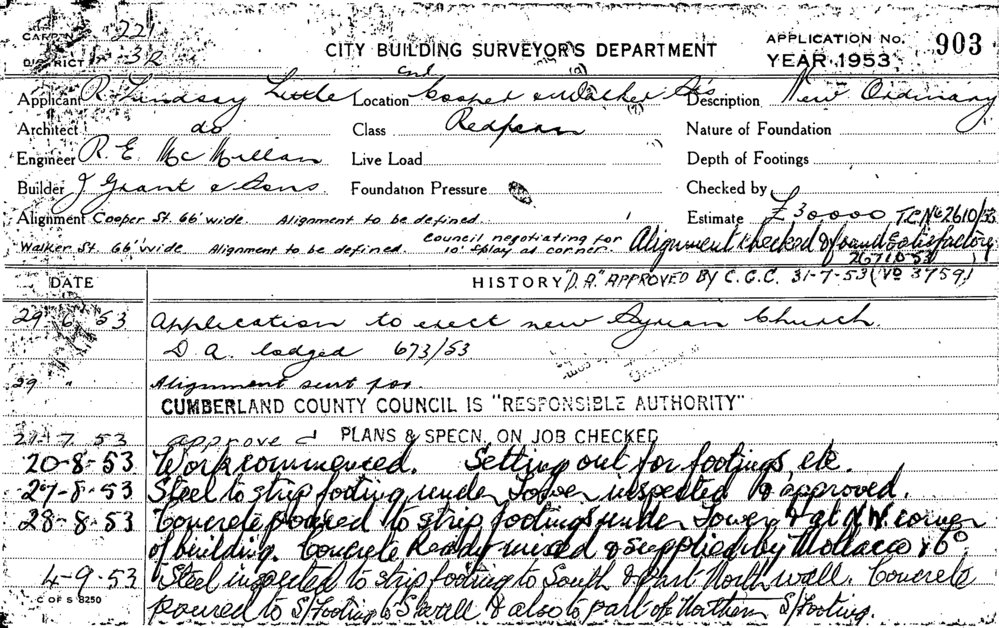 CARD No 221
DISTRICT 32
CITY BUILDING SURVEYOR'S DEPARTMENT
APPLICATION No. 903
YEAR 1953
Applicant R. Lindsay Little Location Cnr Cooper & Walker Sts Description New Ordinary
Architect do Class Redfern Nature of Foundation
Engineer R. E. McMillan Live Load Depth of Footings
Builder J Grant & Sons Foundation Pressure Checked by
Alignment Cooper St. 66' wide Alignment to be defined. Estimate £30,000 T.C. No 2610/53
Walker St. 66' wide Alignment to be defined. Council negotiating for 10' splay at corner. Alignment checked & found satisfactory
26/10/53
DATE HISTORY "D.A." APPROVED BY C.G.C. 31-7-53 (No 3759)
29 6 53 Application to erect new Syrian Church.
D.A. lodged 673/53
29 " Alignment sent for.
CUMBERLAND COUNTY COUNCIL IS "RESPONSIBLE AUTHORITY"
7 53 approved PLANS & SPECN. ON JOB CHECKED
20-8-53 Work commenced. Setting out for footings etc.
27-8-53 Steel to strip footing under Tower inspected & approved.
28-8-53 Concrete poured to strip footings under Tower & at N.W. corner
of building. Concrete Ready mixed & supplied by & Co
4-9-53 Steel inspected to strip footing to South & Part North wall. Concrete
poured to S/Footing to S. wall & also to part of Northern S/Footing.
C OF S 8250